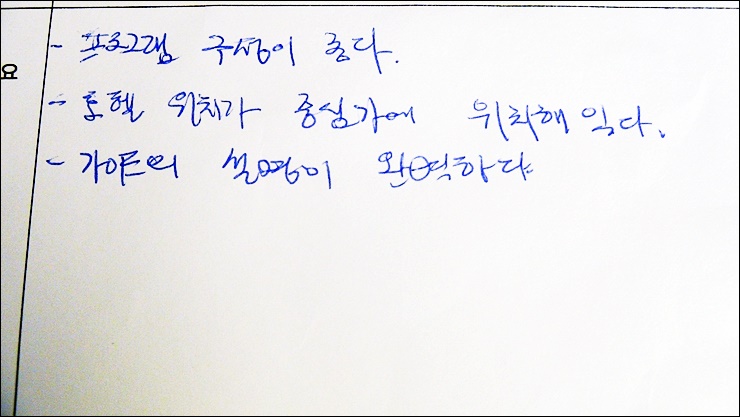 - 프로그램 구성이 좋다.
요
- 호텔 위치가 중심가에 위치해 있다.
- 가이드의 설명이 완벽하다